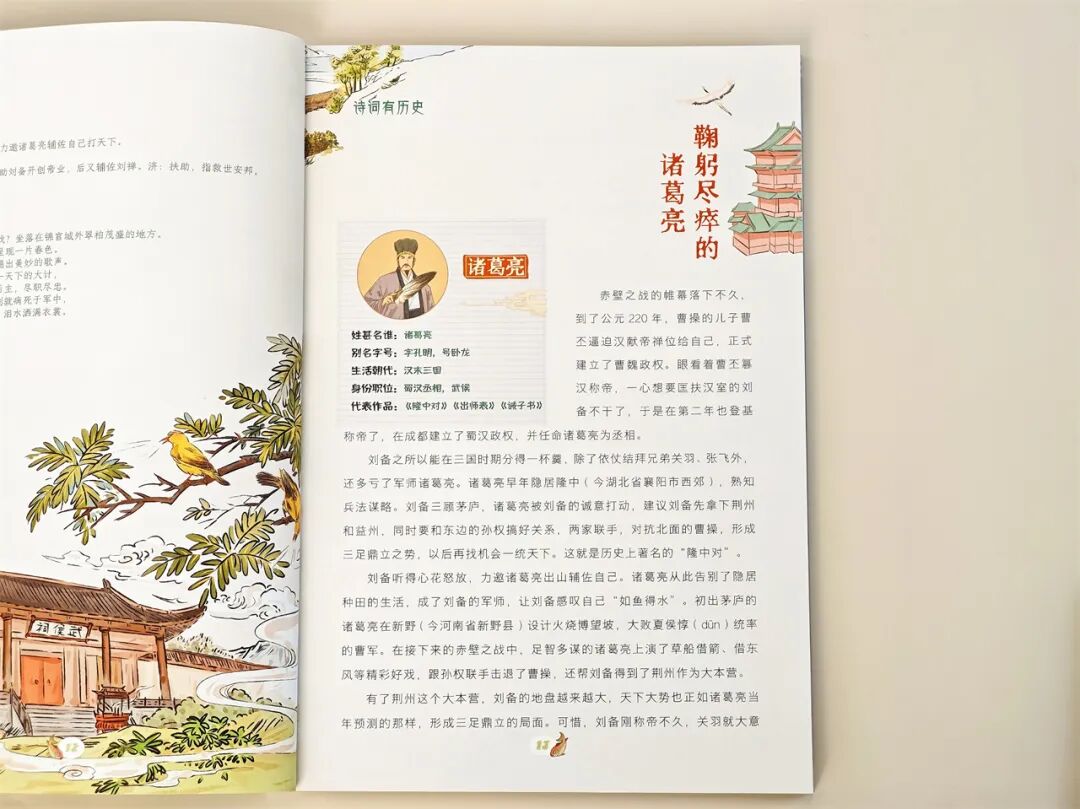 力邀诸葛亮辅佐自己打天下。
助刘备开创帝业，后又辅佐刘禅。济：扶助，指救世安邦，
戈？坐落在锦官城外翠柏茂盛的地方。
呈现一片春色。
昌出美妙的歌声。
一天下的大计，
后主，尽职尽忠。
则就病死于军中，
泪水洒满衣裳。
武侯祠
12
诗词有历史
鞠躬尽瘁的
诸葛亮
诸葛亮
姓甚名谁：诸葛亮
别名字号：字孔明，号卧龙
生活朝代：汉末三国
身份职位：蜀汉丞相，武侯
代表作品：《隆中对》《出师表》《诫子书》
赤壁之战的帷幕落下不久，
到了公元 220 年，曹操的儿子曹
丕逼迫汉献帝禅位给自己，正式
建立了曹魏政权。眼看着曹丕篡
汉称帝，一心想要匡扶汉室的刘
备不干了，于是在第二年也登基
称帝了，在成都建立了蜀汉政权，并任命诸葛亮为丞相。
刘备之所以能在三国时期分得一杯羹，除了依仗结拜兄弟关羽、张飞外，
还多亏了军师诸葛亮。诸葛亮早年隐居隆中（今湖北省襄阳市西郊），熟知
兵法谋略。刘备三顾茅庐，诸葛亮被刘备的诚意打动，建议刘备先拿下荆州
和益州，同时要和东边的孙权搞好关系，两家联手，对抗北面的曹操，形成
三足鼎立之势，以后再找机会一统天下。这就是历史上著名的“隆中对”。
刘备听得心花怒放，力邀诸葛亮出山辅佐自己。诸葛亮从此告别了隐居
种田的生活，成了刘备的军师，让刘备感叹自己“如鱼得水”。初出茅庐的
诸葛亮在新野（今河南省新野县）设计火烧博望坡，大败夏侯惇（dūn）统率
的曹军。在接下来的赤壁之战中，足智多谋的诸葛亮上演了草船借箭、借东
风等精彩好戏，跟孙权联手击退了曹操，还帮刘备得到了荆州作为大本营。
有了荆州这个大本营，刘备的地盘越来越大，天下大势也正如诸葛亮当
年预测的那样，形成三足鼎立的局面。可惜，刘备刚称帝不久，关羽就大意
13